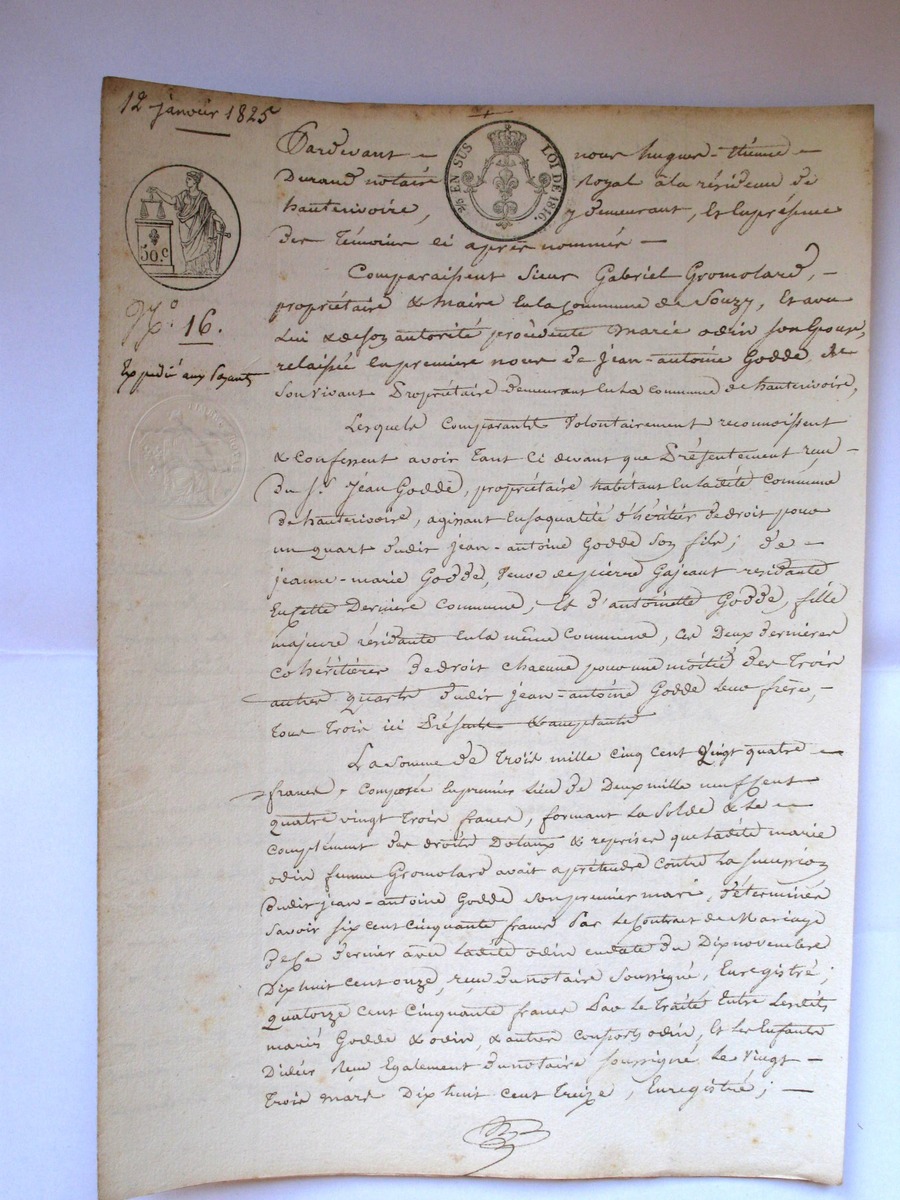 12 janvier 1825
EN SUS LOI DE 1816.
50.C
N.º 16.
Expédié aux Payants
Pardevant nous hugues-étienne
Durand notaire royal à la résidence de
hauterivoire, y demeurant, et en présence
des Témoins ci après nommés
Comparaissent Sieur Gabriel Gromolard,
propriétaire & Maire en la Commune de Souzy, et avec
Lui & de son autorité procédente Marie odin son Epouse,
relaissée en première noces de Jean-antoine Godde de
Son vivant Propriétaire demeurant en La commune de hauterivoire,
Lesquels Comparants Volontairement reconnoissent
& Confessent avoir Tant Ci devant que Présentement reçu
du S.r Jean Godde, propriétaire habitant en Ladite Commune
de hauterivoire, agissant en sa qualité d'héritier de droit pour
un quart dudit jean-antoine Godde Son fils; de
jeanne-marie Godde, Veuve de pierre Gajeant residante
En Cette Dernière Commune, et d'antoinette Godde, fille
majeure résidante en la même Commune, Ces Deux dernières
Cohéritières de droit chacune pour une moitié des Trois
autres quarts dudit jean-antoine Godde leur frère,
tous Trois ici Présents & acceptants
La Somme de Trois mille Cinq Cent Vingt quatre
francs, Composée en premier Lieu de Deux mille neuf Cent
quatre vingt Trois francs, formant La Solde & Le
Complément des droits Dotaux & reprises que Ladite marie
odin femme Gromolard avait à prétendre Contre La Succession
dudit jean-antoine Godde son premier mari, déterminés
Savoir Six Cent Cinquante francs Par le Contrat de Mariage
de Ce dernier avec Ladite odin en date du Dix novembre
Dix huit Cent onze, reçu du notaire Soussigné, Enregistré;
quatorze Cent Cinquante francs Par Le Traité Entre Lesdits
mariés Godde & odin, & autres Consorts odin, Et les Enfants
Didier reçu Egalement du notaire Soussigné Le Vingt
Trois mars Dix huit Cent Treize, Enregistré;